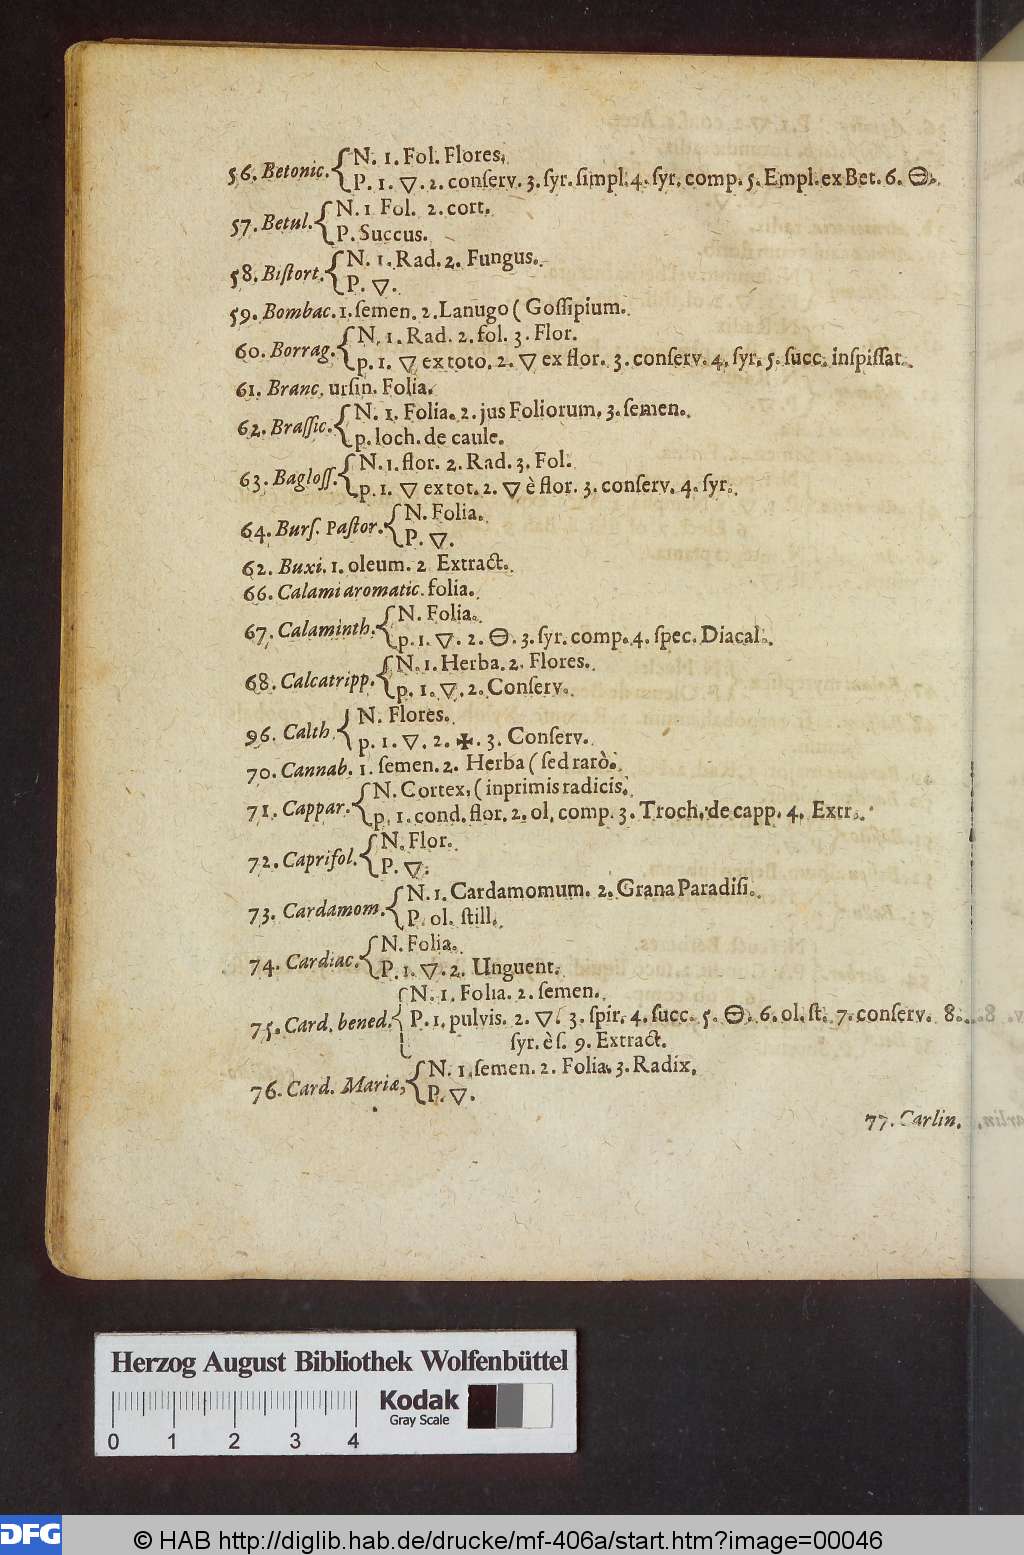 N. 1. Fol. Flores.
56. Betonic.
P. 1. 🜄. 2. conſerv. 3. ſyr. ſimpl. 4. ſyr. comp. 5. Empl. ex Bet. 6. 🜔.
N. 1 Fol. 2. cort.
57. Betul.
P. Succus.
N. 1. Rad. 2. Fungus.
58. Biſtort.
P. 🜄.
59. Bombac. 1. ſemen. 2. Lanugo ( Goſſipium.
N. 1. Rad. 2. fol. 3. Flor.
60. Borrag.
p. 1. 🜄 ex toto. 2. 🜄 ex flor. 3. conſerv. 4. ſyr. 5. ſucc. inſpiſſat.
61. Branc. urſin. Folia.
N. 1. Folia. 2. jus Foliorum. 3. ſemen.
62. Braſſic.
p. loch. de caule.
N. 1. flor. 2. Rad. 3. Fol.
63. Bagloſſ.
p. 1. 🜄 ex tot. 2. 🜄 è flor. 3. conſerv. 4. ſyr.
N. Folia.
64. Burſ. Paſtor.
P. 🜄.
62. Buxi. 1. oleum. 2 Extract.
66. Calami aromatic. folia.
N. Folia.
67. Calaminth.
p. 1. 🜄. 2. 🜔. 3. ſyr. comp. 4. ſpec. Diacal.
N. 1. Herba. 2. Flores.
68. Calcatripp.
p. 1. 🜄. 2. Conſerv.
N. Flores.
96. Calth.
p. 1. 🜄. 2. ✠. 3. Conſerv.
70. Cannab. 1. ſemen. 2. Herba ( ſed rarò.
N. Cortex, ( inprimis radicis.
71. Cappar.
p. 1. cond. flor. 2. ol. comp. 3. Troch. de capp. 4. Extr.
N. Flor.
72. Caprifol.
P. 🜄.
N. 1. Cardamomum. 2. Grana Paradiſi.
73. Cardamom.
P. ol. ſtill.
N. Folia.
74. Cardiac.
P. 1. 🜄. 2. Unguent.
N. 1. Folia. 2. ſemen.
75. Card. bened.
P. 1. pulvis. 2. 🜄. 3. ſpir. 4. ſucc. 5. 🜔. 6. ol. ſt. 7. conſerv. 8.
ſyr. è ſ. 9. Extract.
N. 1. ſemen. 2. Folia. 3. Radix.
76. Card. Mariæ,
P. 🜄.
77. Carlin.
Herzog August Bibliothek Wolfenbüttel
Kodak
Gray Scale
0 1 2 3 4
DFG
© HAB http://diglib.hab.de/drucke/mf-406a/start.htm?image=00046